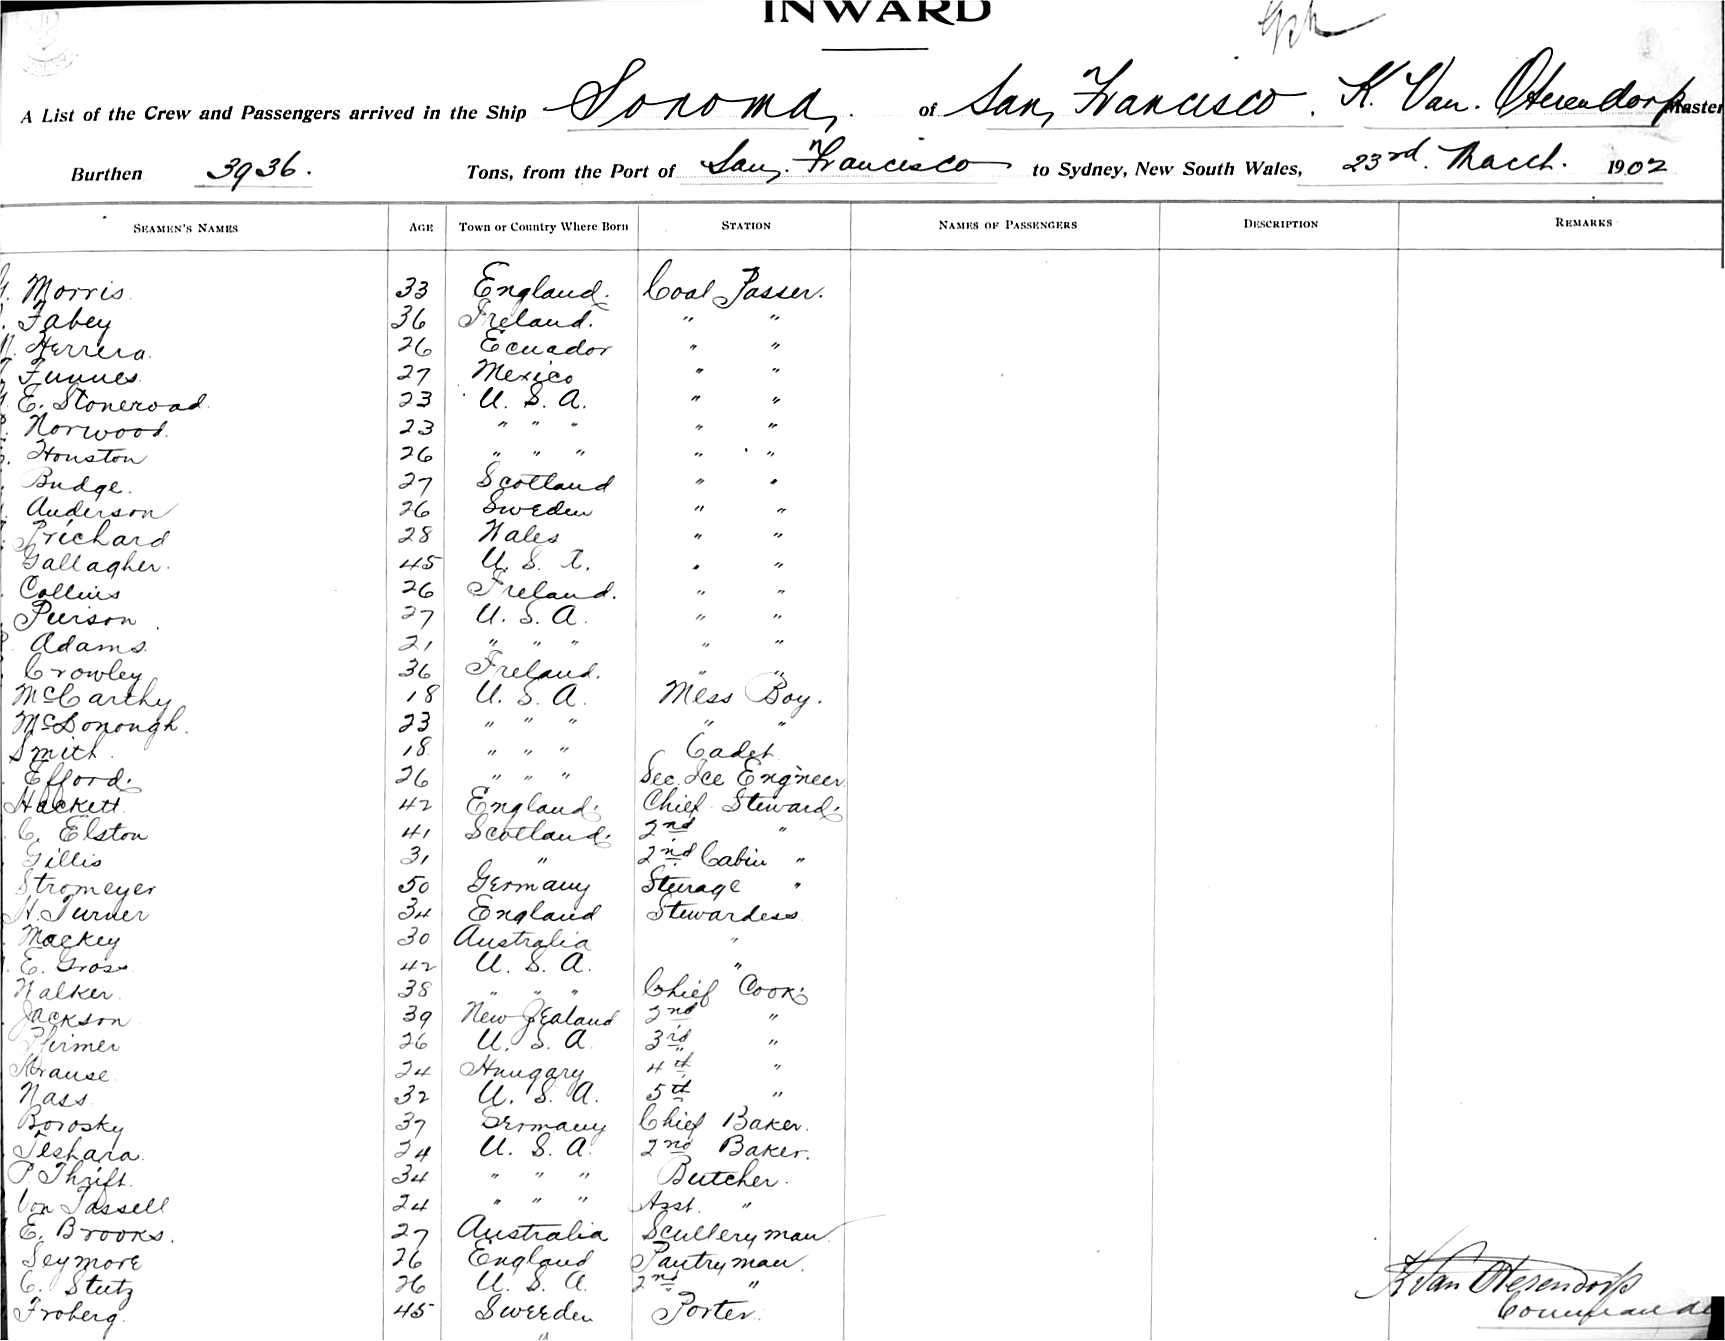 INWARD
A List of the Crew and Passengers arrived in the Ship Sonoma, of San, Francisco. K. Van. Oterendorp Master
Burthen 3936. Tons, from the Port of San, Francisco to Sydney, New South Wales, 23rd. March. 1902
SEAMEN'S NAMES AGE Town or Country Where Born STATION NAMES OF PASSENGERS DESCRIPTION REMARKS
Morris 33 England. Coal Passer.
Fahey 36 Ireland. " "
Herrera 26 Ecuador " "
Funnes 27 Mexico " "
E. Stoneroad. 23 U. S. A. " "
Norwood. 23 " " " " "
Houston 26 " " " " "
Budge. 27 Scotland " "
Anderson 26 Sweden " "
Prichard 28 Wales " "
Gallagher. 45 U. S. A. " "
Collins 26 Ireland. " "
Peirson 27 U. S. A. " "
Adams. 21 " " " " "
Crowley 36 Ireland. " "
McCarthy 18 U. S. A. Mess Boy.
McDonough. 23 " " " " "
Smith. 18 " " " Cadet
Efford. 26 " " " Sec. Ice Eng'neer
Hackett 42 England. Chief Steward.
C. Elston 41 Scotland. 2nd "
Gillis 31 " 2nd Cabin "
Stromeyer 50 Germany Sturage "
H. Turner 34 England Stewardess
Mackey 30 Australia "
E. Gross 42 U. S. A. "
Walker. 38 " " " Chief Cook.
Jackson 39 New Zealand 2nd "
26 U. S. A. 3rd "
Krause 24 Hungary 4th "
Nass 32 U. S. A. 5th "
Borosky 37 Germany Chief Baker.
Teshara. 24 U. S. A. 2nd Baker.
P. Thrift. 34 " " " Butcher.
Von Tassell 24 " " " Asst. "
E. Brooks. 27 Australia Scullery man
Seymore 26 England Pantry man.
C. Stutz 26 U. S. A. 2nd "
Froberg. 45 Sweeden Porter.
K Van Oterendorp